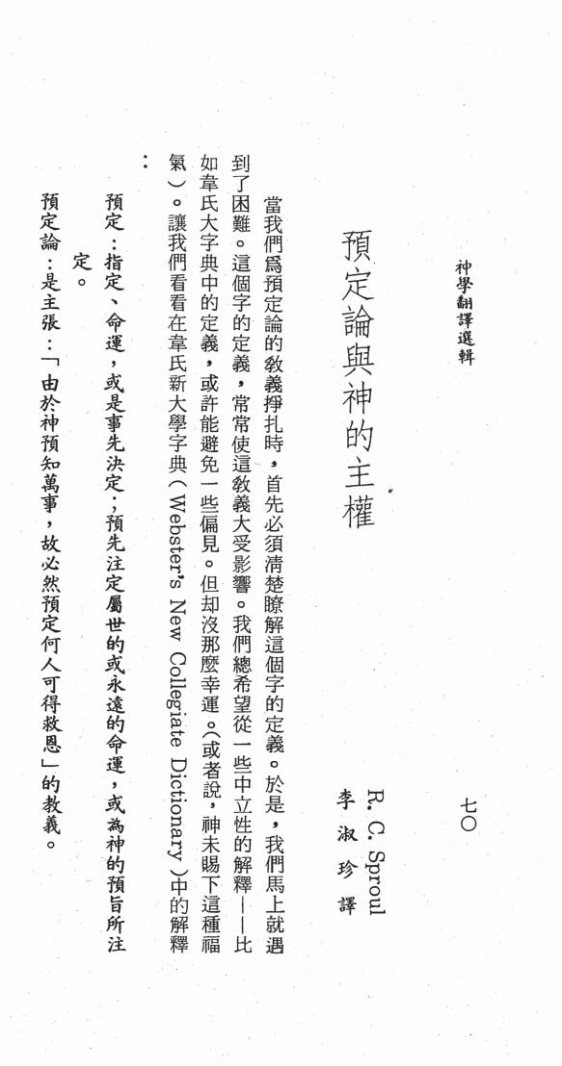 神學翻譯選輯
七〇
預定論與神的主權
R. C. Sproul
李淑珍 譯
當我們爲預定論的教義掙扎時，首先必須清楚瞭解這個字的定義。於是，我們馬上就遇
到了困難。這個字的定義，常常使這教義大受影響。我們總希望從一些中立性的解釋——比
如韋氏大字典中的定義，或許能避免一些偏見。但却沒那麼幸運。（或者說，神未賜下這種福
氣）。讓我們看看在韋氏新大學字典（Webster's New Collegiate Dictionary）中的解釋
：
預定：指定、命運，或是事先決定；預先注定屬世的或永遠的命運，或為神的預旨所注
定。
預定論：是主張：「由於神預知萬事，故必然預定何人可得救恩」的教義。